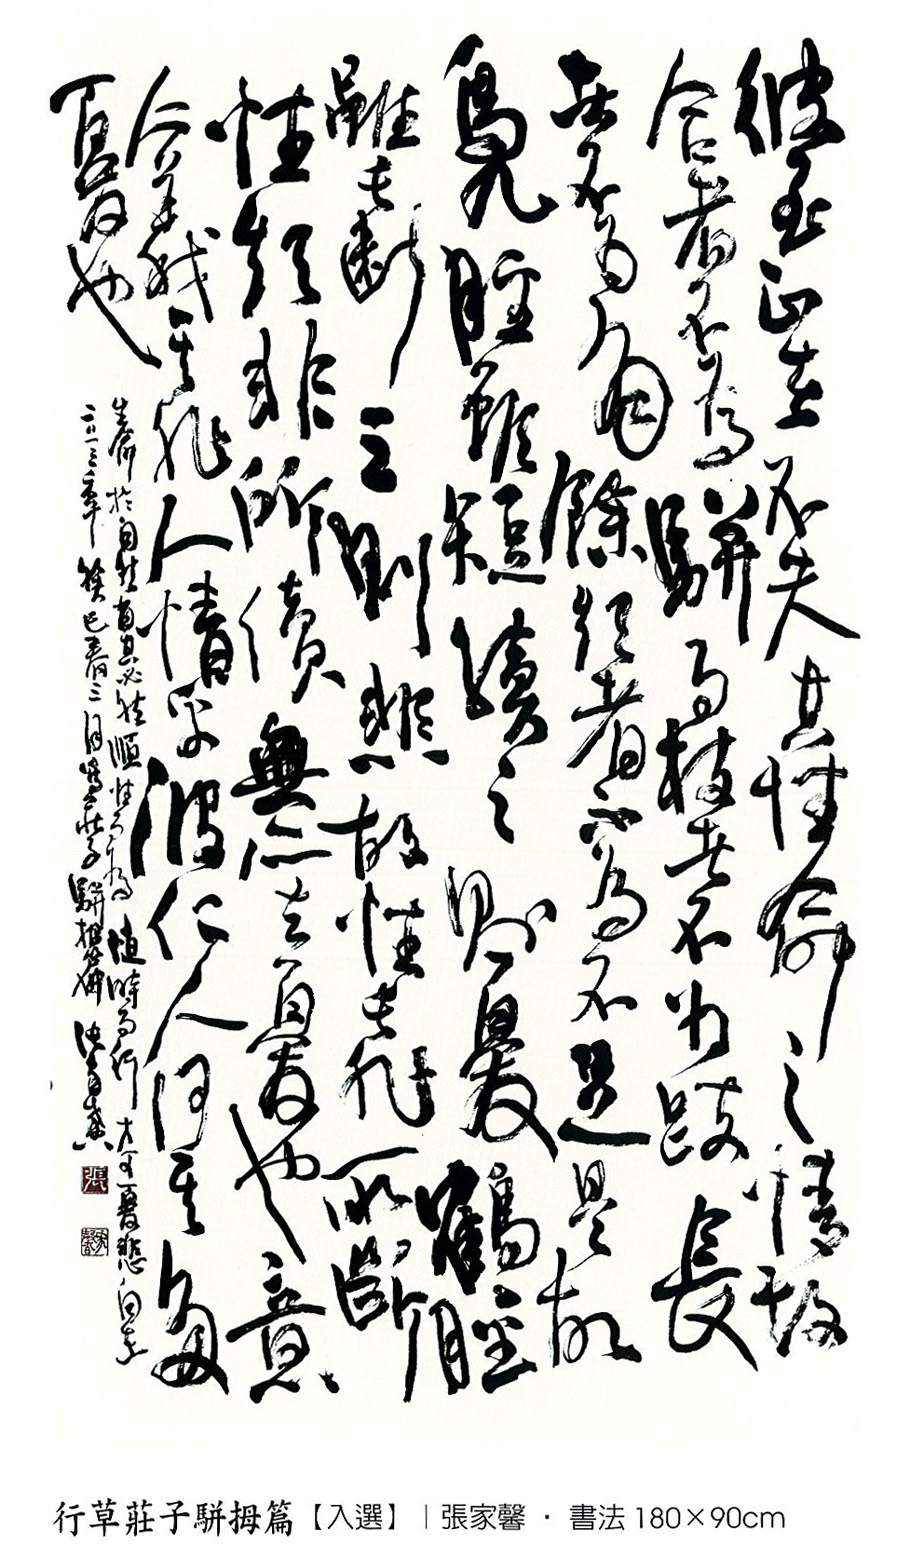 彼至正者不失其性命之情故
合者不為駢而枝者不為跂長
者不為有餘短者不為不足是故
鳧脛雖短續之則憂鶴脛
雖長斷之則悲故性長非所斷
性短非所續無所去憂也意
仁義其非人情乎彼仁人何其多
憂也
生命於自然有其必然順性而為隨時而行方可憂悲自去
二〇一三年癸巳春三月寫莊子駢拇篇 張家馨
張
行草莊子駢拇篇【入選】｜張家馨 · 書法 180×90cm